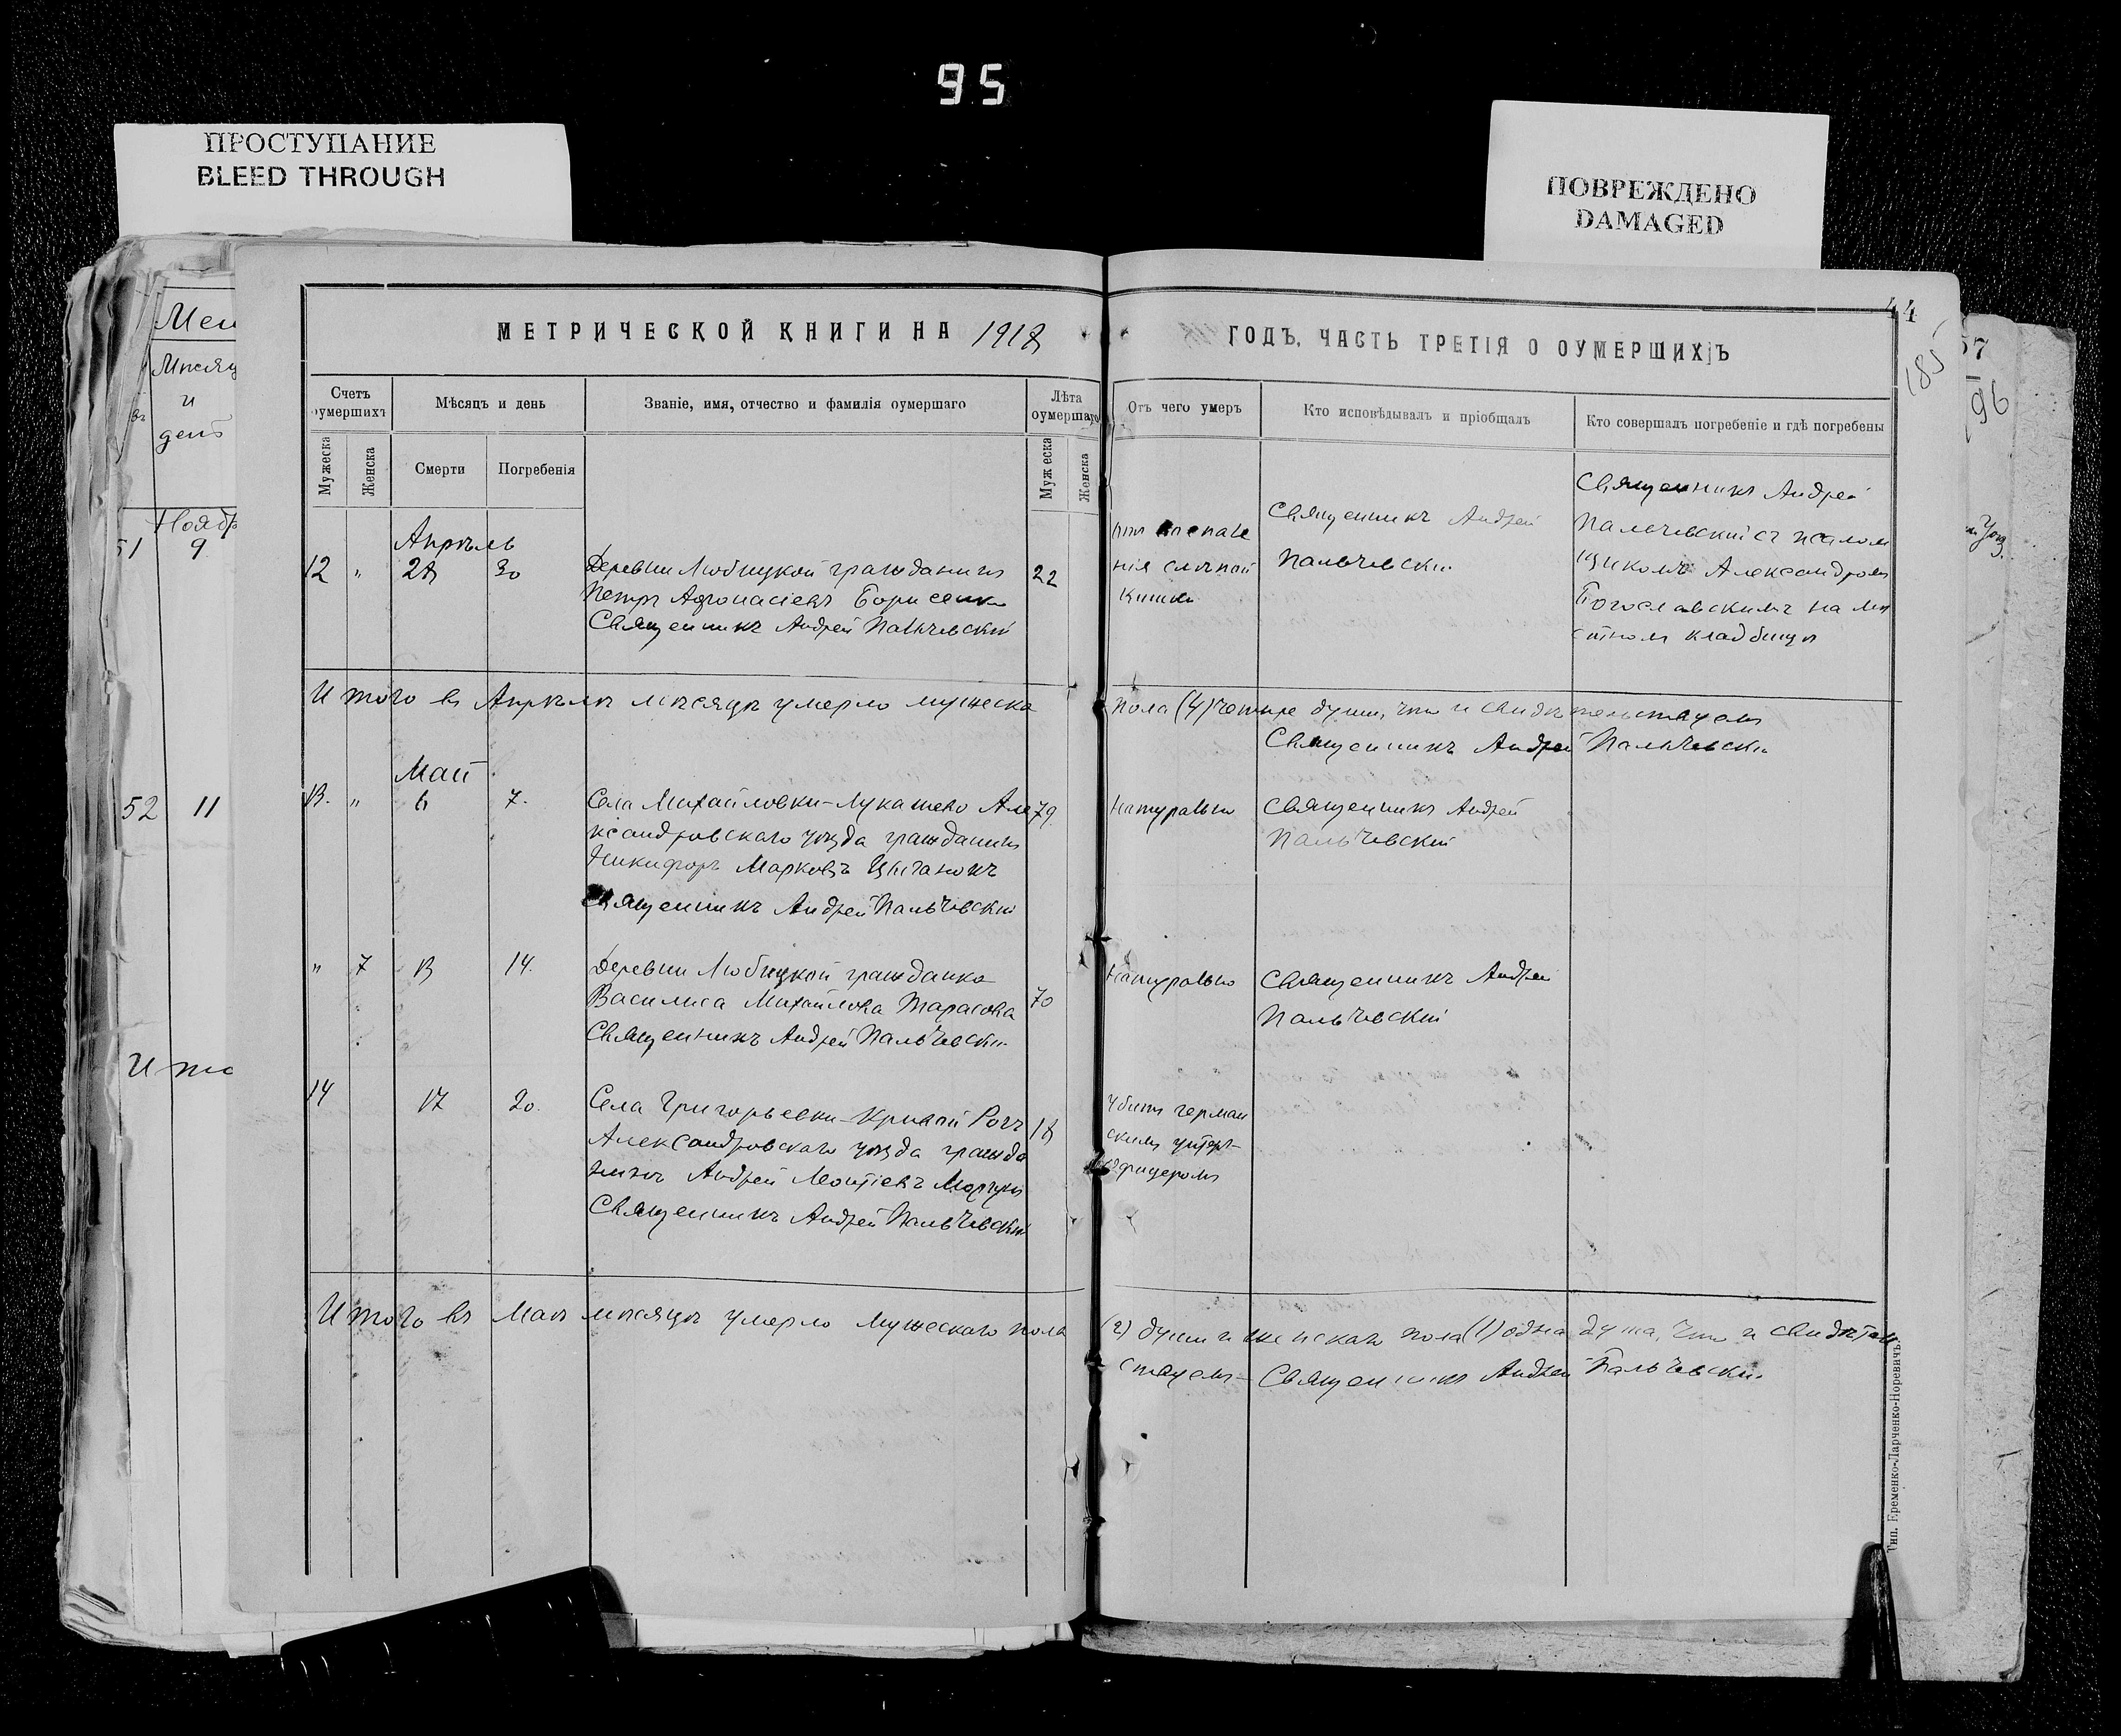 95
ПРОСТУПАНИЕ
BLEED THROUGH
ПОВРЕЖДЕНО
DAMAGED
44
185
57
96
Мѣсяц
и
день
Ноябр
51 9
52 11
Ито
МЕТРИЧЕСКОЙ КНИГИ НА 1918
ГОДЪ, ЧАСТЬ ТРЕТІЯ О ОУМЕРШИХЪ
Счетъ оумершихъ
Мужеска
Женска
Мѣсяцъ и день
Смерти
Погребенія
Званіе, имя, отчество и фамилія оумершаго
Лѣта оумершаго
Мужеска
Женска
Отъ чего умеръ
Кто исповѣдывалъ и пріобщалъ
Кто совершалъ погребеніе и гдѣ погребены
Апрѣль
12 " 28 30
Деревни Любицкой гражданинъ
Петръ Афонасіевъ Борисенко
Священникъ Андрей Пальчевскій
22
нія слѣпой
кишки
Священникъ Андрей
Пальчевскій
Священникъ Андрей
Пальчевскій съ псалом
щикомъ Александромъ
Богославскимъ на мѣ
стномъ кладбищѣ
Итого въ Апрѣлѣ мѣсяцѣ умерло мужеска
пола (4) четыре души, что и свидѣтельствуемъ
Священникъ Андрей Пальчевскій
Май
13. " 6 7.
Села Михайловки-Лукашево Але
ксандровскаго уѣзда гражданинъ
Никифоръ Марковъ Цыганокъ
Священникъ Андрей Пальчевскій
79
Натурально
Священникъ Андрей
Пальчевскій
" 7 13 14.
Деревни Любицкой гражданка
Василиса Михайлова Тарасова
Священникъ Андрей Пальчевскій
70
Натурально
Священникъ Андрей
Пальчевскій
14 17 20.
Села Григорьевки-Кривой Рогъ
Александровскаго уѣзда гражда
нинъ Андрей Леонтіевъ
Священникъ Андрей Пальчевскій
18
Убитъ герман
скимъ унтеръ-
офицеромъ
Итого въ Маѣ мѣсяцѣ умерло мужескаго пола
(2) души и женскаго пола (1) одна душа, что и свидѣтель
ствуемъ - Священникъ Андрей Пальчевскій
Тип. Еременко-Ларченко-Норевичъ.